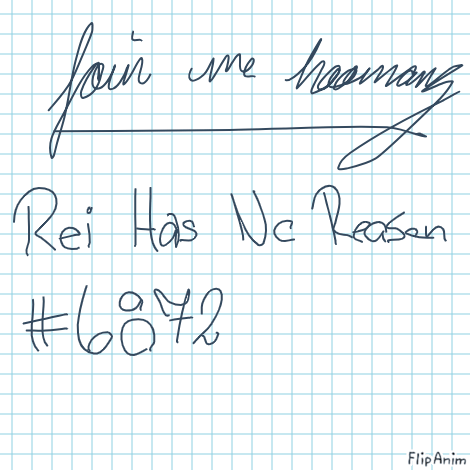 join me hoomans
Rei Has No Reason
#6872
FlipAnim